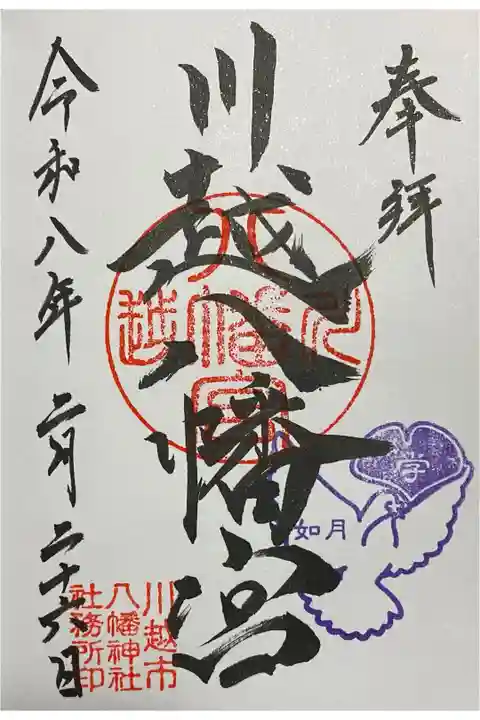 奉拝
川越八幡宮
令和八年 二月 二十六日
川越八幡宮
学
如月
川越市
八幡神社
社務所印